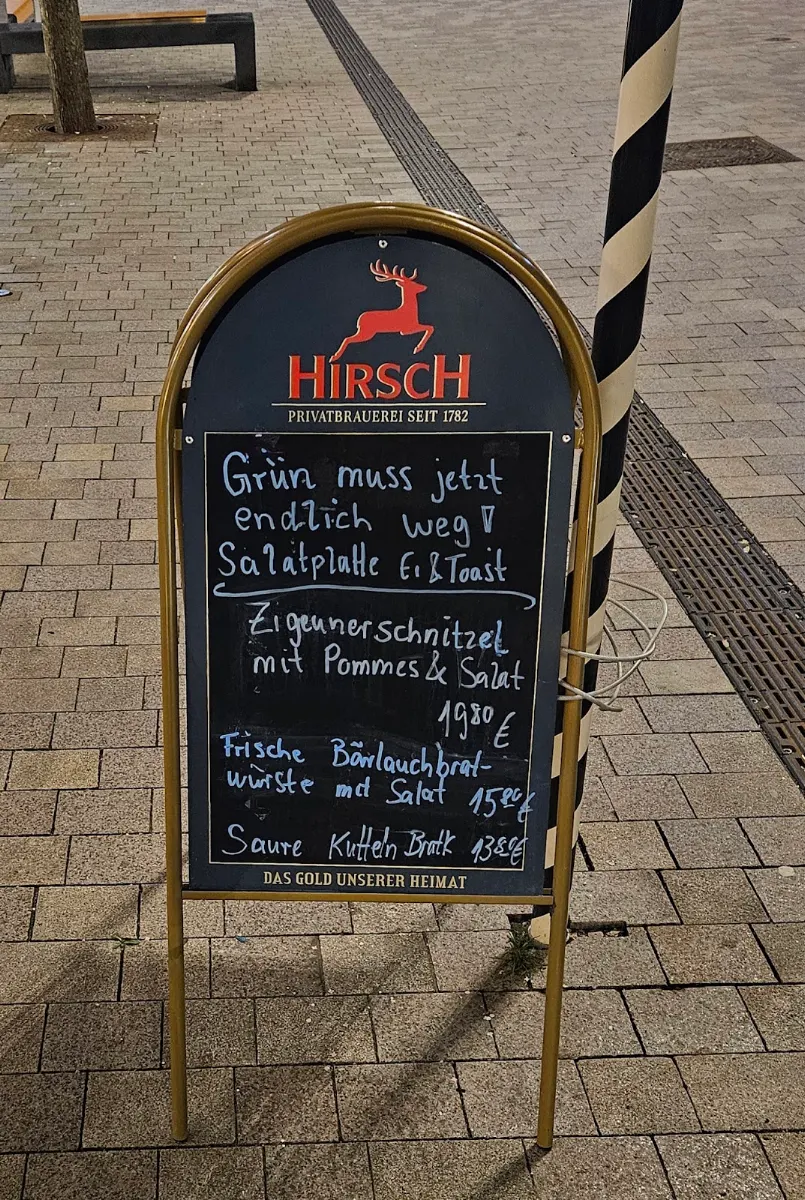 HIRSCH
PRIVATBRAUEREI SEIT 1782
Grün muss jetzt
endlich weg!
Salatplatte Ei & Toast
Zigeunerschnitzel
mit Pommes & Salat
1980 €
Frische Bärlauchbrat-
würste mit Salat 15,80€
Saure Kutteln Bratk 13,80€
DAS GOLD UNSERER HEIMAT